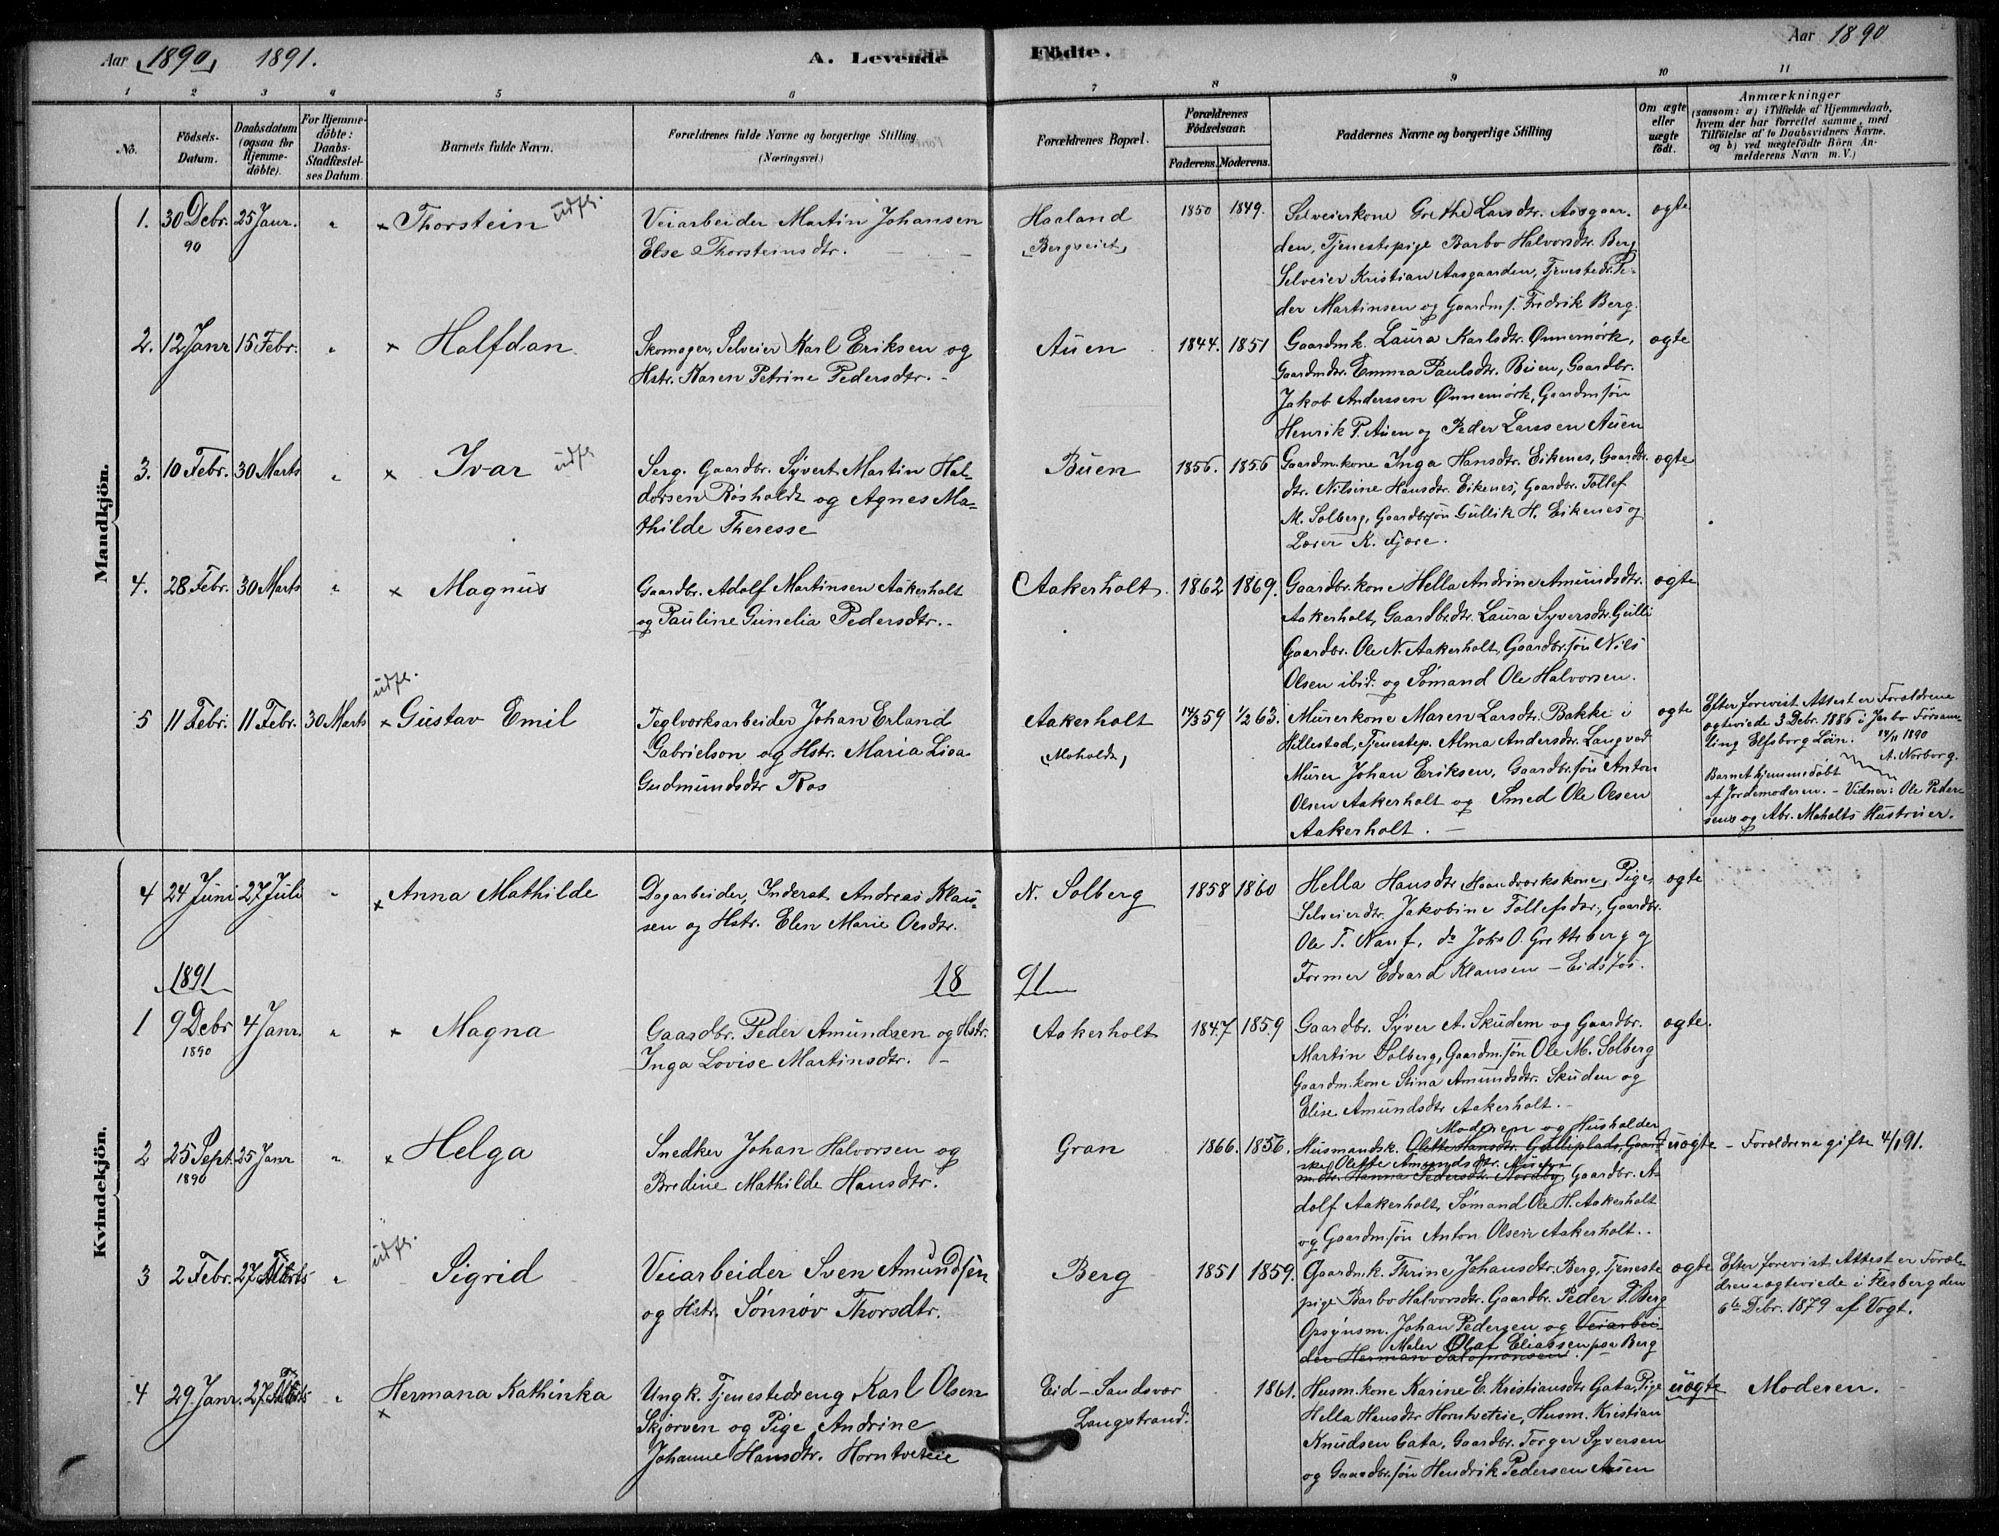 Aar 1890 1891.
A. Levende Födte.
Aar 1890
1 2 3 4 5 6 7 8 9 10 11
No.
Födsels-Datum.
Daabsdatum (ogsaa for Hjemmedöbte).
For Hjemmedöbte: Daabs-Stadfæstelses Datum.
Barnets fulde Navn.
Forældrenes fulde Navne og borgerlige Stilling. (Næringsvei.)
Forældrenes Bopæl.
Forældrenes Födselsaar.
Faderens. Moderens.
Faddernes Navne og borgerlige Stilling
Om ægte eller uægte födt.
Anmærkninger
(saasom: a) i Tilfælde af Hjemmedaab,
hvem der har forrettet samme, med
Tilföielse af to Daabsvidners Navne.
og b) ved uægtefödte Börn Anmelderens Navn m. V.)
Mandkjön.
1. 30 Debr. 90 25 Janr. " × Thorstein udfl.
Veiarbeider Martin Johansen
Else Thorsteinsdtr.
Haaland
(Bergveiet)
1850 1849.
Selveierkone Grethe Larsdtr. Aasgaar-
den, Tjenestepige Barbo Halvorsdtr. Berg
Selveier Kristian Aasgaarden, Tjenestedr. Pe-
der Martinsen og Gaardm.s. Fredrik Berg.
ægte
2. 12 Janr 15 Febr. " × Halfdan
Skomager, Selveier Karl Eriksen og
Hstr. Karen Petrine Pedersdtr.
Auen
1844. 1851
Gaardmk. Laura Karlsdtr. Ønnemørk,
Gaardmdtr. Emma Paulsdtr. Buen, Gaardbr.
Jakob Anderssen Ønnemørk, Gaardmsøn
Henrik P. Auen og Peder Larssen Auen
ægte
3. 10 Febr. 30 Marts " × Ivar udfl
Serg. Gaardbr. Syvert Martin Hal-
dorsen Røsholdt og Agnes Ma-
thilde Theresse
Buen
1856. 1856
Gaardm.kone Inga Hansdtr. Eikenes, Gaardbr.
dtr. Nilsine Hansdtr. Eikenes, Gaardbr. Tollef
M. Solberg, Gaardbrsøn Gullik H. Eikenes og
Lærer K. Fjære.
ægte
4. 28 Febr. 30 Marts " × Magnus
Gaardbr. Adolf Martinsen Aakerholt
og Pauline Gunelia Pedersdtr.
Aakerholt.
1862 1869.
Gaardbr.kone Hella Andrine Amundsdtr.
Aakerholt, Gaardbr.dtr. Laura Syversdtr. Gulli
Gaardbr. Ole N. Aakerholt, Gaardbr.søn Nils
Olsen ibid. og Sømand Ole Halvorsen.
ægte
5 11 Febr. 11 Febr. 30 Marts udfl. × Gustav Emil
Teglværksarbeider Johan Erland
Gabrielson og Hstr. Maria Lisa
Gudmundsdtr Ros
Aakerholt
(Moholdt)
14/3 59 1/2 63.
Murerkone Maren Larsdtr. Bakke i
Hillestad, Tjenestep. Alma Andersdtr. Langved
Murer Johan Eriksen, Gaardbr.søn Anton
Olsen Aakerholt og Smed Ole Olsen
Aakerholt.
ægte
Efter forevist Attest er Forældrene
ægteviede 3 Febr. 1886 i Jærbo Forsam-
ling Elfsborg Län. 24/11 1890
A. Norborg.
Barnet hjemmedøbt
af Jordemoderen. – Vidner: Ole Peder-
sens og Abr. Moholts Hustruer.
Kvindekjön.
4 24 Juni 27 Juli " × Anna Mathilde
Dagarbeider, Inderst Andreas Klau-
sen og Hstr. Elen Marie Olsdtr.
N. Solberg
1858 1860
Hella Hansdtr Haandværkskone, Pige,
Selveierdtr. Jakobine Tollefsdtr., Gaardbr.
Ole T. Nauf, do Joh. O. Gretteberg og
Former Edvard Klausen – Eidsfos.
ægte
1891
18 91
1 9 Debr 1890 4 Janr. " × Magna
Gaardbr. Peder Amundsen og Hstr.
Inga Lovise Martinsdtr.
Aakerholt
1847 1859
Gaardbr. Syver A. Skuden og Gaardbr.
Martin Solberg, Gaardm.søn Ole M. Solberg
Gaardm.kone Stina Amundsdtr. Skuden og
Elise Amundsdtr Aakerholt.
ægte.
2 25 Sept. 1890 25 Janr " × Helga
Snedker Johan Halvorsen og
Bredine Mathilde Hansdtr.
Gran
1866. 1856.
Moderen og Husholder
Husmandsk. Olette Hansdtr. Gulliplads, Gaard-
ske Olette Amundsdtr.
m.dtr. Hanna Pedersdtr. Nordby, Gaardbr. A-
dolf Aakerholt, Sømand Ole H. Aakerholt
og Gaardmsøn Anton Olsen Aakerholt.
uægte
– Forældrene gifte 4/1 91.
3 2 Febr. 27 Marts " udfl. Sigrid
Veiarbeider Sven Amundsen
og Hstr. Sønnøv Thorsdtr.
Berg
1851 1859.
Gaardmk. Thrine Johansdtr. Berg, Tjeneste
pige Barbo Halvorsdtr. Gaardbr. Peder J. Berg
Opsynsm. Johan Pedersen og Veiarbei-
Maler Olaf Eliassen paa Berg
der Herman Salomonsen.
ægte
Efter forevist Attest er Foræl-
drene ægteviede i Flesberg den
6te Debr. 1879 af Vogt.
4 29 Janr. 27 Marts " × Hermana Kathinka
Ungk. Tjenestedreng Karl Olsen
Skjørven og Pige Andrine
Johanne Hansdtr. Horntveteie
Eid – Sandsvær
Langstrand.
1861.
Husm.kone Karine E. Kristiansdtr Gata, Pige
Hella Hansdtr Horntveteie, Husm. Kristian
Knudsen Gata, Gaardbr. Torger Syversen
og Gaardbr.søn Hendrik Pedersen Auen
uægte
Moderen.